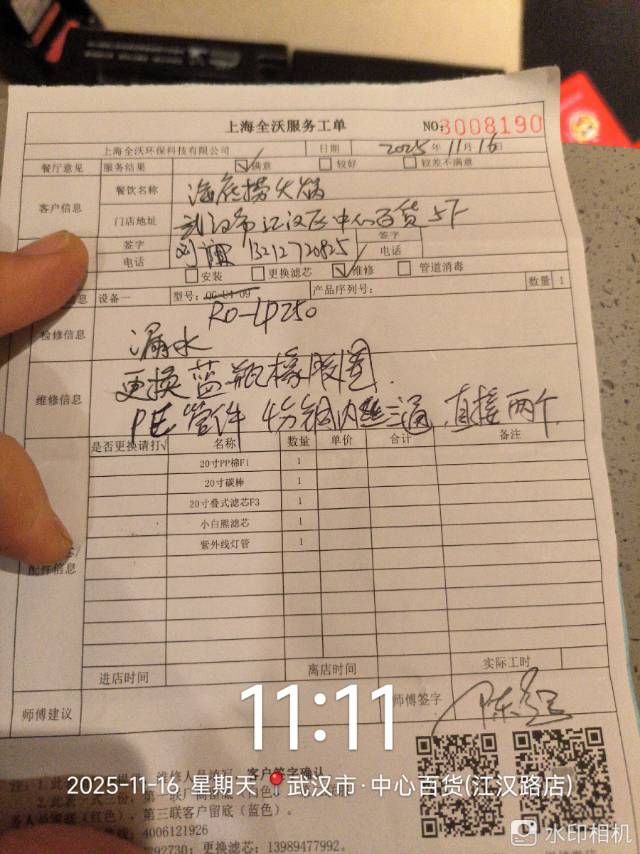 上海全沃服务工单 NO:3008190
上海全沃环保科技有限公司 日期 2025年11月16日
餐厅意见 服务结果 ☑满意 □较好 □较差不满意
客户信息 餐饮名称 海底捞火锅
门店地址 武汉市江汉区中心百货5F
签字 签字
电话 13212720825 电话
□安装 □更换滤芯 ☑维修 □管道消毒
设备一 型号: OG-U1-09 产品序列号: 数量 1
RO-LP250
检修信息 漏水
维修信息 更换蓝瓶橡胶圈.
PE管件 4分铜内丝三通 直接两个.
是否更换请打√ 名称 数量 单价 合计 备注
20寸PP棉F1 1
20寸碳棒 1
20寸叠式滤芯F3 1
小白熊滤芯 1
紫外线灯管 1
配件信息
进店时间 离店时间 实际工时
师傅建议 师傅签字
11:11
2025-11-16 星期天 武汉市·中心百货(江汉路店)
注: 1.此 客户签字确认
第三联客户留底（蓝色）。
4006121926
292730; 更换滤芯: 13989477992.
水印相机